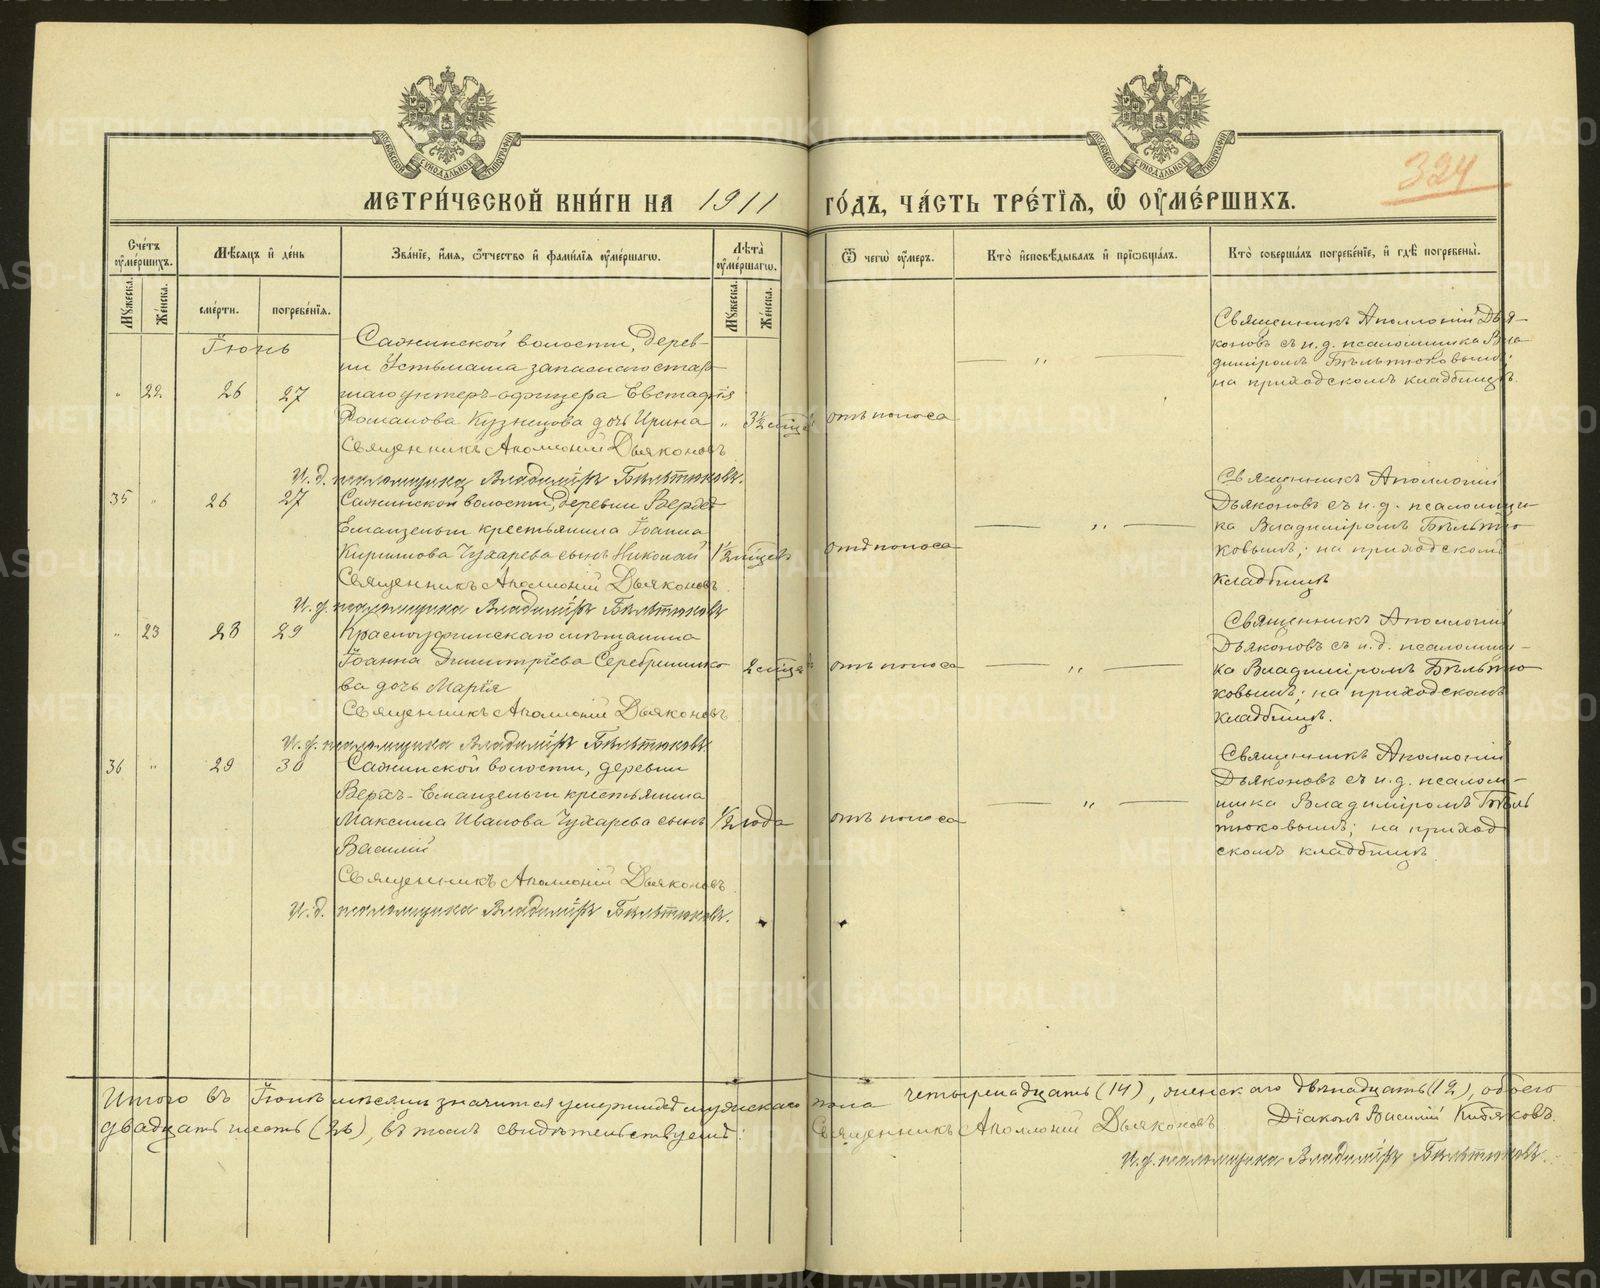 324
МЕТРИ́ЧЕСКОЙ КНИ́ГИ НА 1911 ГО́ДЪ, ЧА́СТЬ ТРЕ́ТІѦ, Ѽ ОУ҆МЕ́РШИХЪ.
Сче́тъ оу҆ме́ршихъ.
Мꙋжеска. Же́нска.
Мѣ́сяцъ и҆ де́нь
сме́рти. погребе́нїѧ.
Зва́нїе, и҆́мѧ, ѻ҆́тчество и҆ фами́лїѧ оу҆ме́ршагѡ.
Лѣ́та оу҆ме́ршагѡ.
Мꙋжеска. Же́нска.
Ѿ чегѡ̀ оу҆́меръ.
Кто̀ и҆сповѣ́дывалъ и҆ прїѡбща́лъ.
Кто̀ соверша́лъ погребе́нїе, и҆ гдѣ̀ погребены̀.
Іюнь
Сажинской волости, дерев-
ни Устьмаша запаснаго стар-
" 22. 26 27 шаго унтеръ-офицера Евстафія
Романова Кузнецова дочь Ирина " 3½ мѣсц. отъ поноса — " —
Священникъ Аполлоній Дьяконовъ
И. д. псаломщика Владиміръ Бѣльтюковъ.
Священникъ Аполлоній Дья-
коновъ съ и. д. псаломщика Вла-
диміромъ Бѣльтюковымъ;
на приходскомъ кладбищѣ.
35 " 26 27 Сажинской волости, деревни Верхъ-
Емаизельги крестьянина Іоанна
Чухарева сынъ Николай 1½ мѣсцевъ отъ поноса — " —
Священникъ Аполлоній Дьяконовъ.
И. д. псаломщика Владиміръ Бѣльтюковъ
Священникъ Аполлоній
Дьяконовъ съ и. д. псаломщи-
ка Владиміромъ Бѣльтю-
ковымъ; на приходскомъ
кладбищѣ
" 23 28 29 Красноуфимскаго мѣщанина
Іоанна Димитріева Серебреннико-
ва дочь Марія 2 мѣсцевъ отъ поноса — " —
Священникъ Аполлоній Дьяконовъ
И. д. псаломщика Владиміръ Бѣльтюковъ.
Священникъ Аполлоній
Дьяконовъ съ и. д. псаломщи-
ка Владиміромъ Бѣльтю-
ковымъ; на приходскомъ
кладбищѣ.
36 " 29 30 Сажинской волости, деревни
Верхъ-Емаизельги крестьянина
Максима Иванова Чухарева сынъ ½ года отъ поноса — " —
Василій
Священникъ Аполлоній Дьяконовъ.
И. д. псаломщика Владиміръ Бѣльтюковъ.
Священникъ Аполлоній
Дьяконовъ съ и. д. псалом-
щика Владиміромъ Бѣль-
тюковымъ; на приход-
скомъ кладбищѣ.
Итого въ Іюнѣ мѣсяцѣ значится умершихъ мужскаго пола четырнадцать (14), женскаго двѣнадцать (12), обоего
двадцать шесть (26), въ томъ свидѣтельствуемъ: Священникъ Аполлоній Дьяконовъ. Діаконъ Василій Кибяковъ.
И. д. псаломщика Владиміръ Бѣльтюковъ.
METRIKI.GASO-URAL.RU